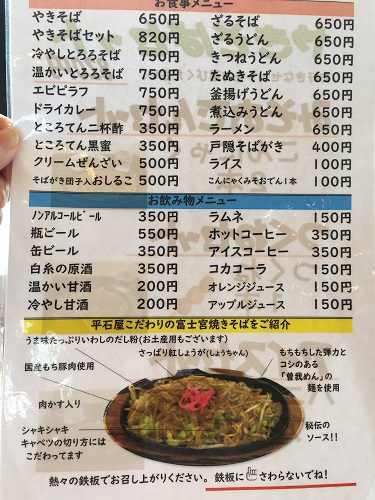 お食事メニュー
やきそば 650円
やきそばセット 820円
冷やしとろろそば 750円
温かいとろろそば 750円
エビピラフ 750円
ドライカレー 750円
ところてん二杯酢 350円
ところてん黒蜜 350円
クリームぜんざい 500円
そばがき団子入おしるこ 500円
ざるそば 650円
ざるうどん 650円
きつねうどん 650円
たぬきそば 650円
釜揚げうどん 650円
煮込みうどん 650円
ラーメン 650円
戸隠そばがき 400円
ライス 100円
こんにゃくみそおでん1本 100円
お飲み物メニュー
ノンアルコールビール 350円
瓶ビール 550円
缶ビール 350円
白糸の原酒 350円
温かい甘酒 200円
冷やし甘酒 200円
ラムネ 150円
ホットコーヒー 350円
アイスコーヒー 350円
コカコーラ 150円
オレンジジュース 150円
アップルジュース 150円
平石屋こだわりの富士宮焼きそばをご紹介
うま味たっぷりいわしのだし粉(お土産用もございます)
さっぱり紅しょうが(しょうちゃん)
もちもちした弾力と
コシのある
「曽我めん」の
麺を使用
国産もち豚肉使用
肉かす入り
シャキシャキ
キャベツの切り方には
こだわってます
秘伝の
ソース!!
熱々の鉄板でお召し上がりください。 鉄板にさわらないでね!